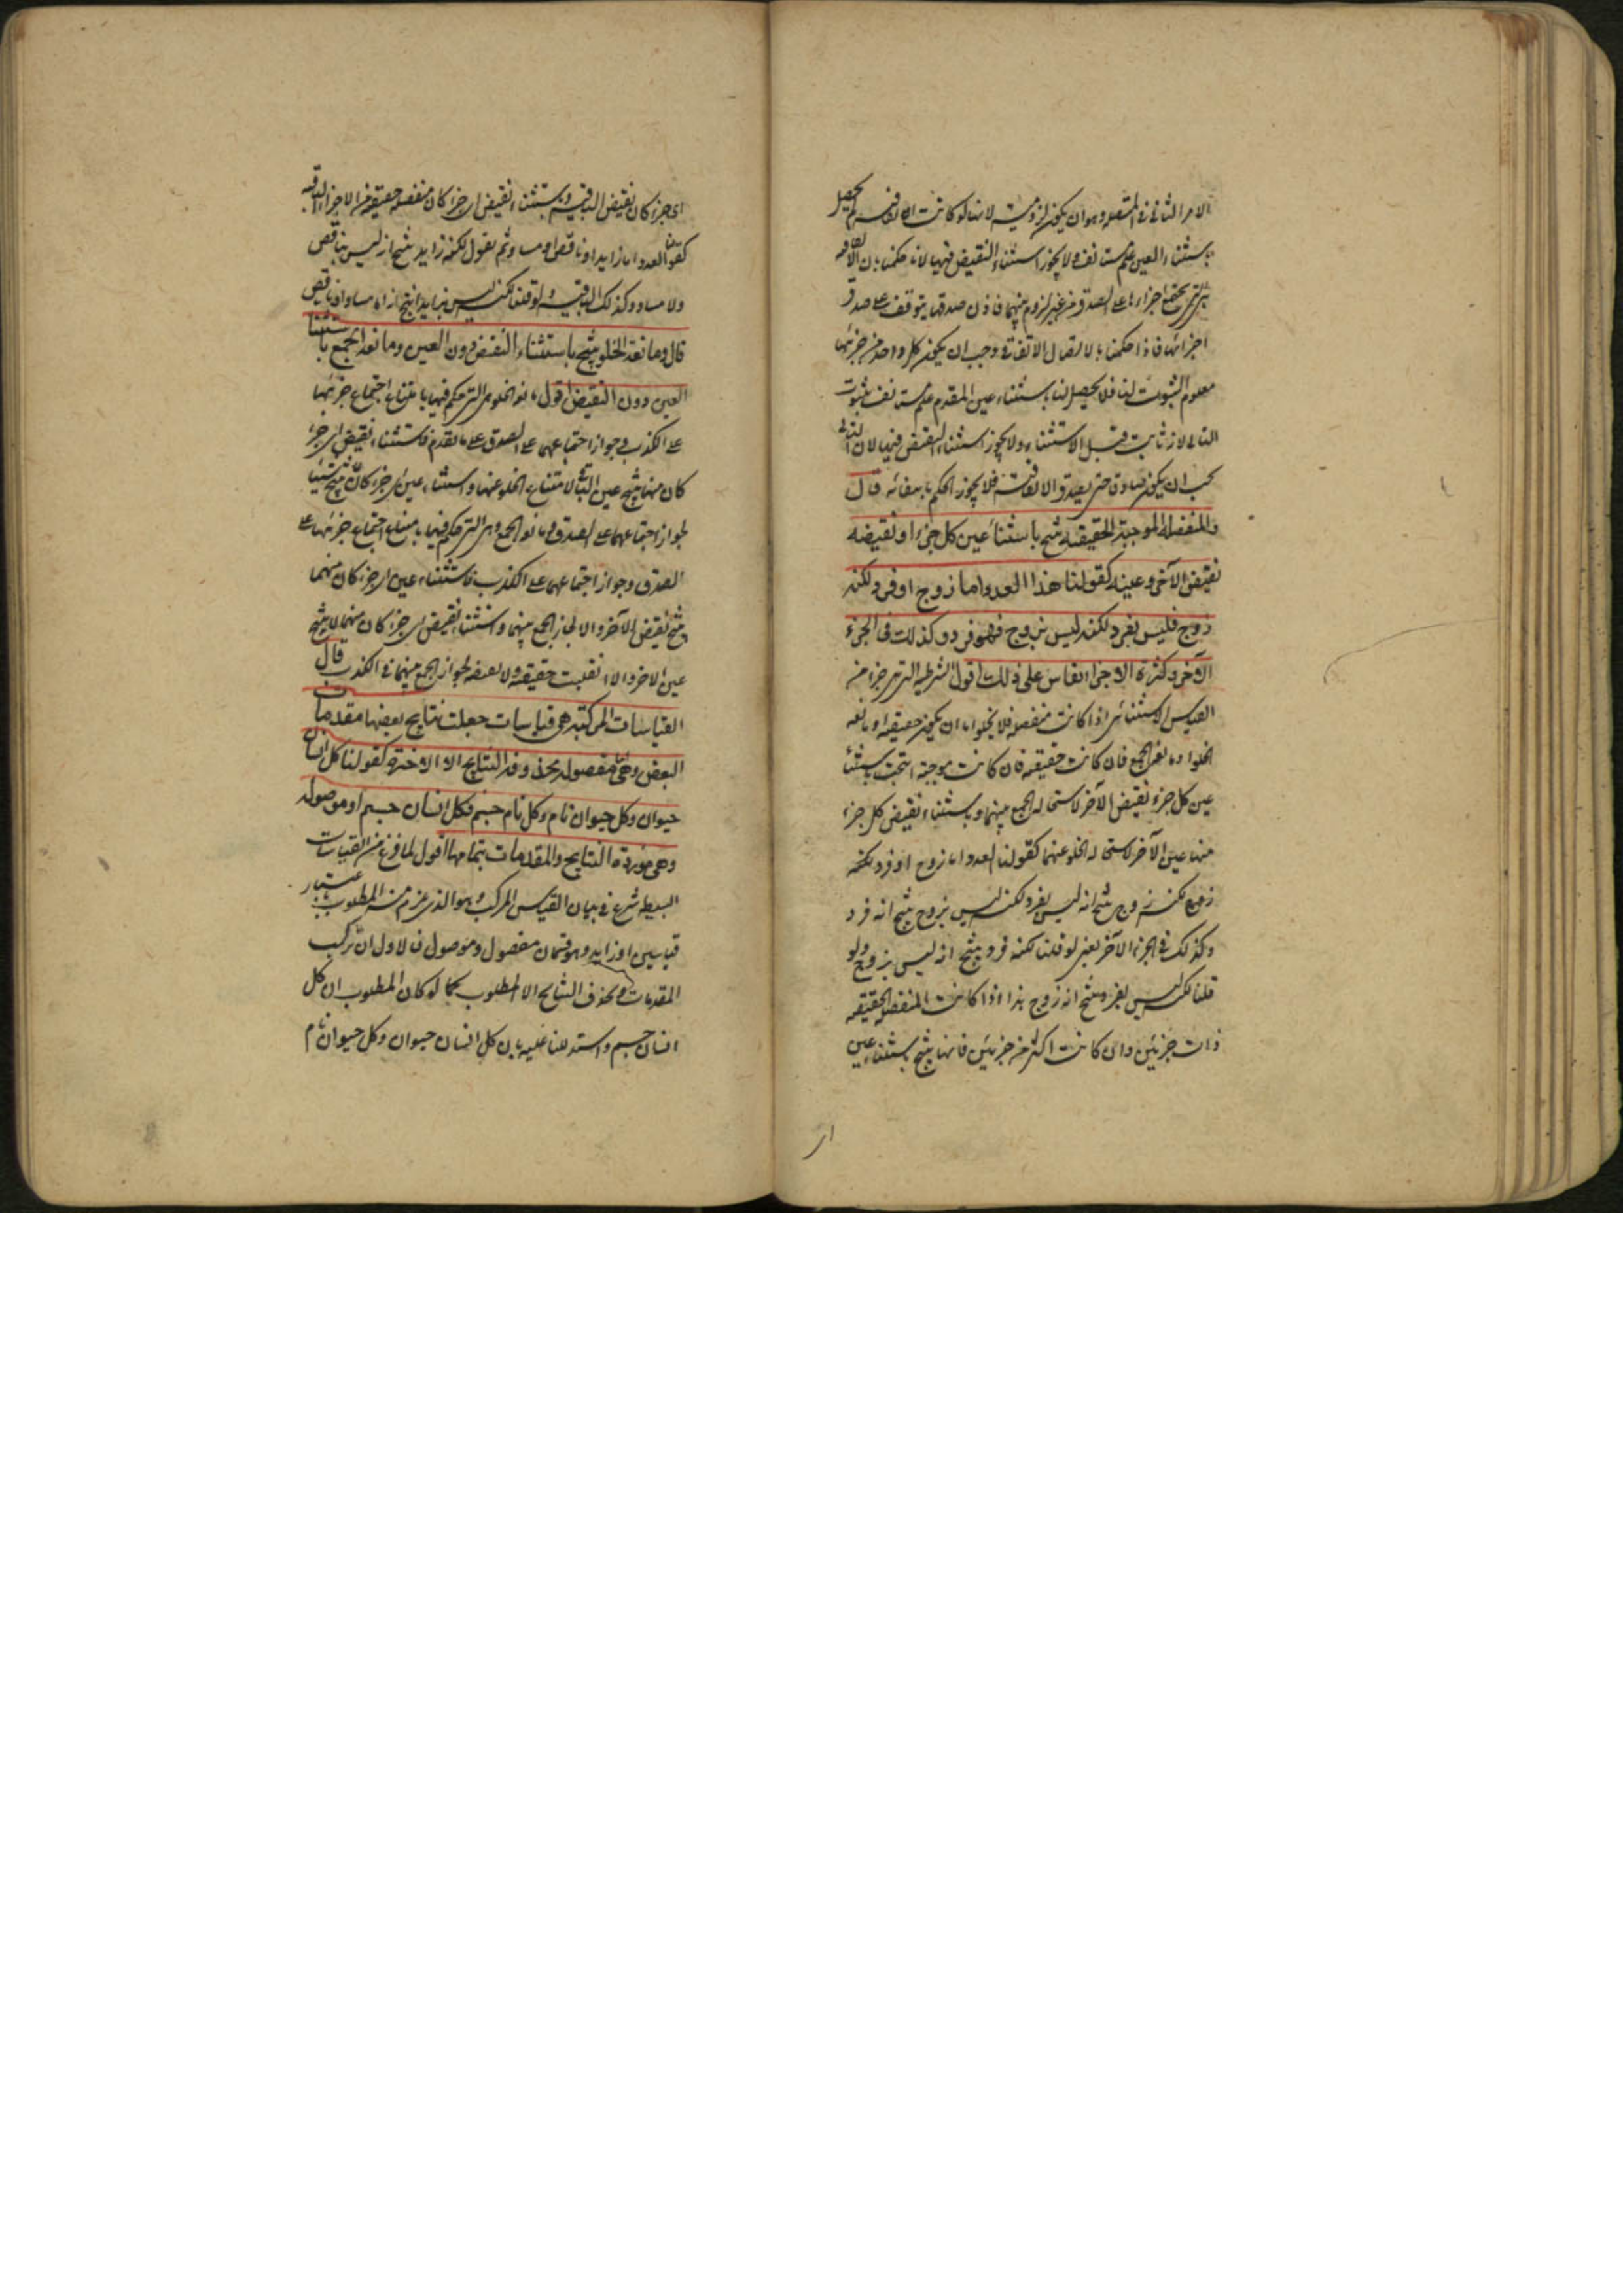 الامر الثاني في المتصلة وهو ان يكون لزومية لانها لو كانت اتفاقية لم يحصل
باستثناء العين علم مستانف ولا يجوز استثناء النقيض فيها لانا حكمنا بان الاتفاقية
هي التي يجتمع اجزاءها على الصدق من غير لزوم منهما فاذن صدقها يتوقف على صدق
اجزائها فاذا حكمنا بالاتصال الاتفاقي وجب ان يكون كل واحد من جزئيها
معلوم الثبوت لنا فلا يحصل لنا باستثناء عين المقدم علم مستانف بثبوت
التالي لانه ثابت قبل الاستثناء ولا يجوز استثناء النقيض فيها لان التالي
يجب ان يكون صادقا حتى يصدق الاتفاقية فلا يجوز الحكم بانتفائه قال
والمنفصلة الموجبة الحقيقية ينتج باستثناء عين كل جزء او نقيضه
نقيض الآخر وعينه كقولنا هذا العدد اما زوج او فرد لكنه
زوج فليس بفرد لكنه ليس بزوج فهو فرد وكذلك في الجزء
الآخر وكثرة الاجزاء تقاس على ذلك اقول الشرطية التي هي جزء من
القياس الاستثنائي اذا كانت منفصلة فلا يخلوا اما ان يكون حقيقية او مانعة
الخلو او مانعة الجمع فان كانت حقيقية فان كانت موجبة انتجت باستثناء
عين كل جزء نقيض الآخر لاستحالة الجمع بينهما وباستثناء نقيض كل جزء
منها عين الآخر لاستحالة الخلو عنهما كقولنا العدد اما زوج او فرد لكنه
زوج لكنه زوج ينتج انه ليس بفرد لكنه ليس بزوج ينتج انه فرد
وكذلك في الجزء الآخر يعني لو قلنا لكنه فرد ينتج انه ليس بزوج ولو
قلنا لكنه ليس بفرد ينتج انه زوج هذا اذا كانت المنفصلة الحقيقية
ذات جزئين وان كانت اكثر من جزئين فانها ينتج باستثناء عين
اي
اي جزء كان نقيض الباقية وباستثناء نقيض اي جزء كان منفصلة حقيقية من الاجزاء الباقية
كقولنا العدد اما زايد او ناقص او مساو ثم نقول لكنه زايد ينتج انه ليس بناقص
ولا مساو وكذلك الباقية ولو قلنا لكنه ليس بزايد انتج انه اما مساو او ناقص
قال ومانعة الخلو ينتج باستثناء النقيض دون العين ومانعة الجمع باستثناء
العين دون النقيض اقول مانعة الخلو هي التي حكم فيها بامتناع اجتماع جزئيها
على الكذب في جواز اجتماعهما على الصدق على ما تقدم فاستثناء نقيض اي جزء
كان منها ينتج عين الباقي لامتناع الخلو عنهما واستثناء عين اي جزء كان لا ينتج شيئا
لجواز اجتماعهما على الصدق ومانعة الجمع وهي التي حكم فيها بامتناع اجتماع جزئيها على
الصدق وجواز اجتماعهما على الكذب فاستثناء عين اي جزء كان منهما
ينتج نقيض الآخر والا لجاز الجمع بينهما واستثناء نقيض اي جزء كان منهما لا ينتج
عين الاخر والا انقلبت حقيقية ولا نقيضه لجواز الجمع بينهما في الكذب قال
القياسات المركبة هي قياسات جعلت نتايج بعضها مقدمات
البعض وهي اما مفصولة محذوفة النتايج الا الاخيرة كقولنا كل انسان
حيوان وكل حيوان نام وكل نام جسم فكل انسان جسم او موصولة
وهي موردة النتايج والمقدمات بتمامها اقول لما فرغ من القياسات
البسيطة شرع في بيان القياس المركب وهو الذي يلزم منه المطلوب باعتبار
قياسين او زايد وهو قسمان مفصول وموصول فالاول ان تركب
المقدمات ويحذف النتايج الا المطلوب كما لو كان المطلوب ان كل
انسان جسم واستدللنا عليه بان كل انسان حيوان وكل حيوان نام